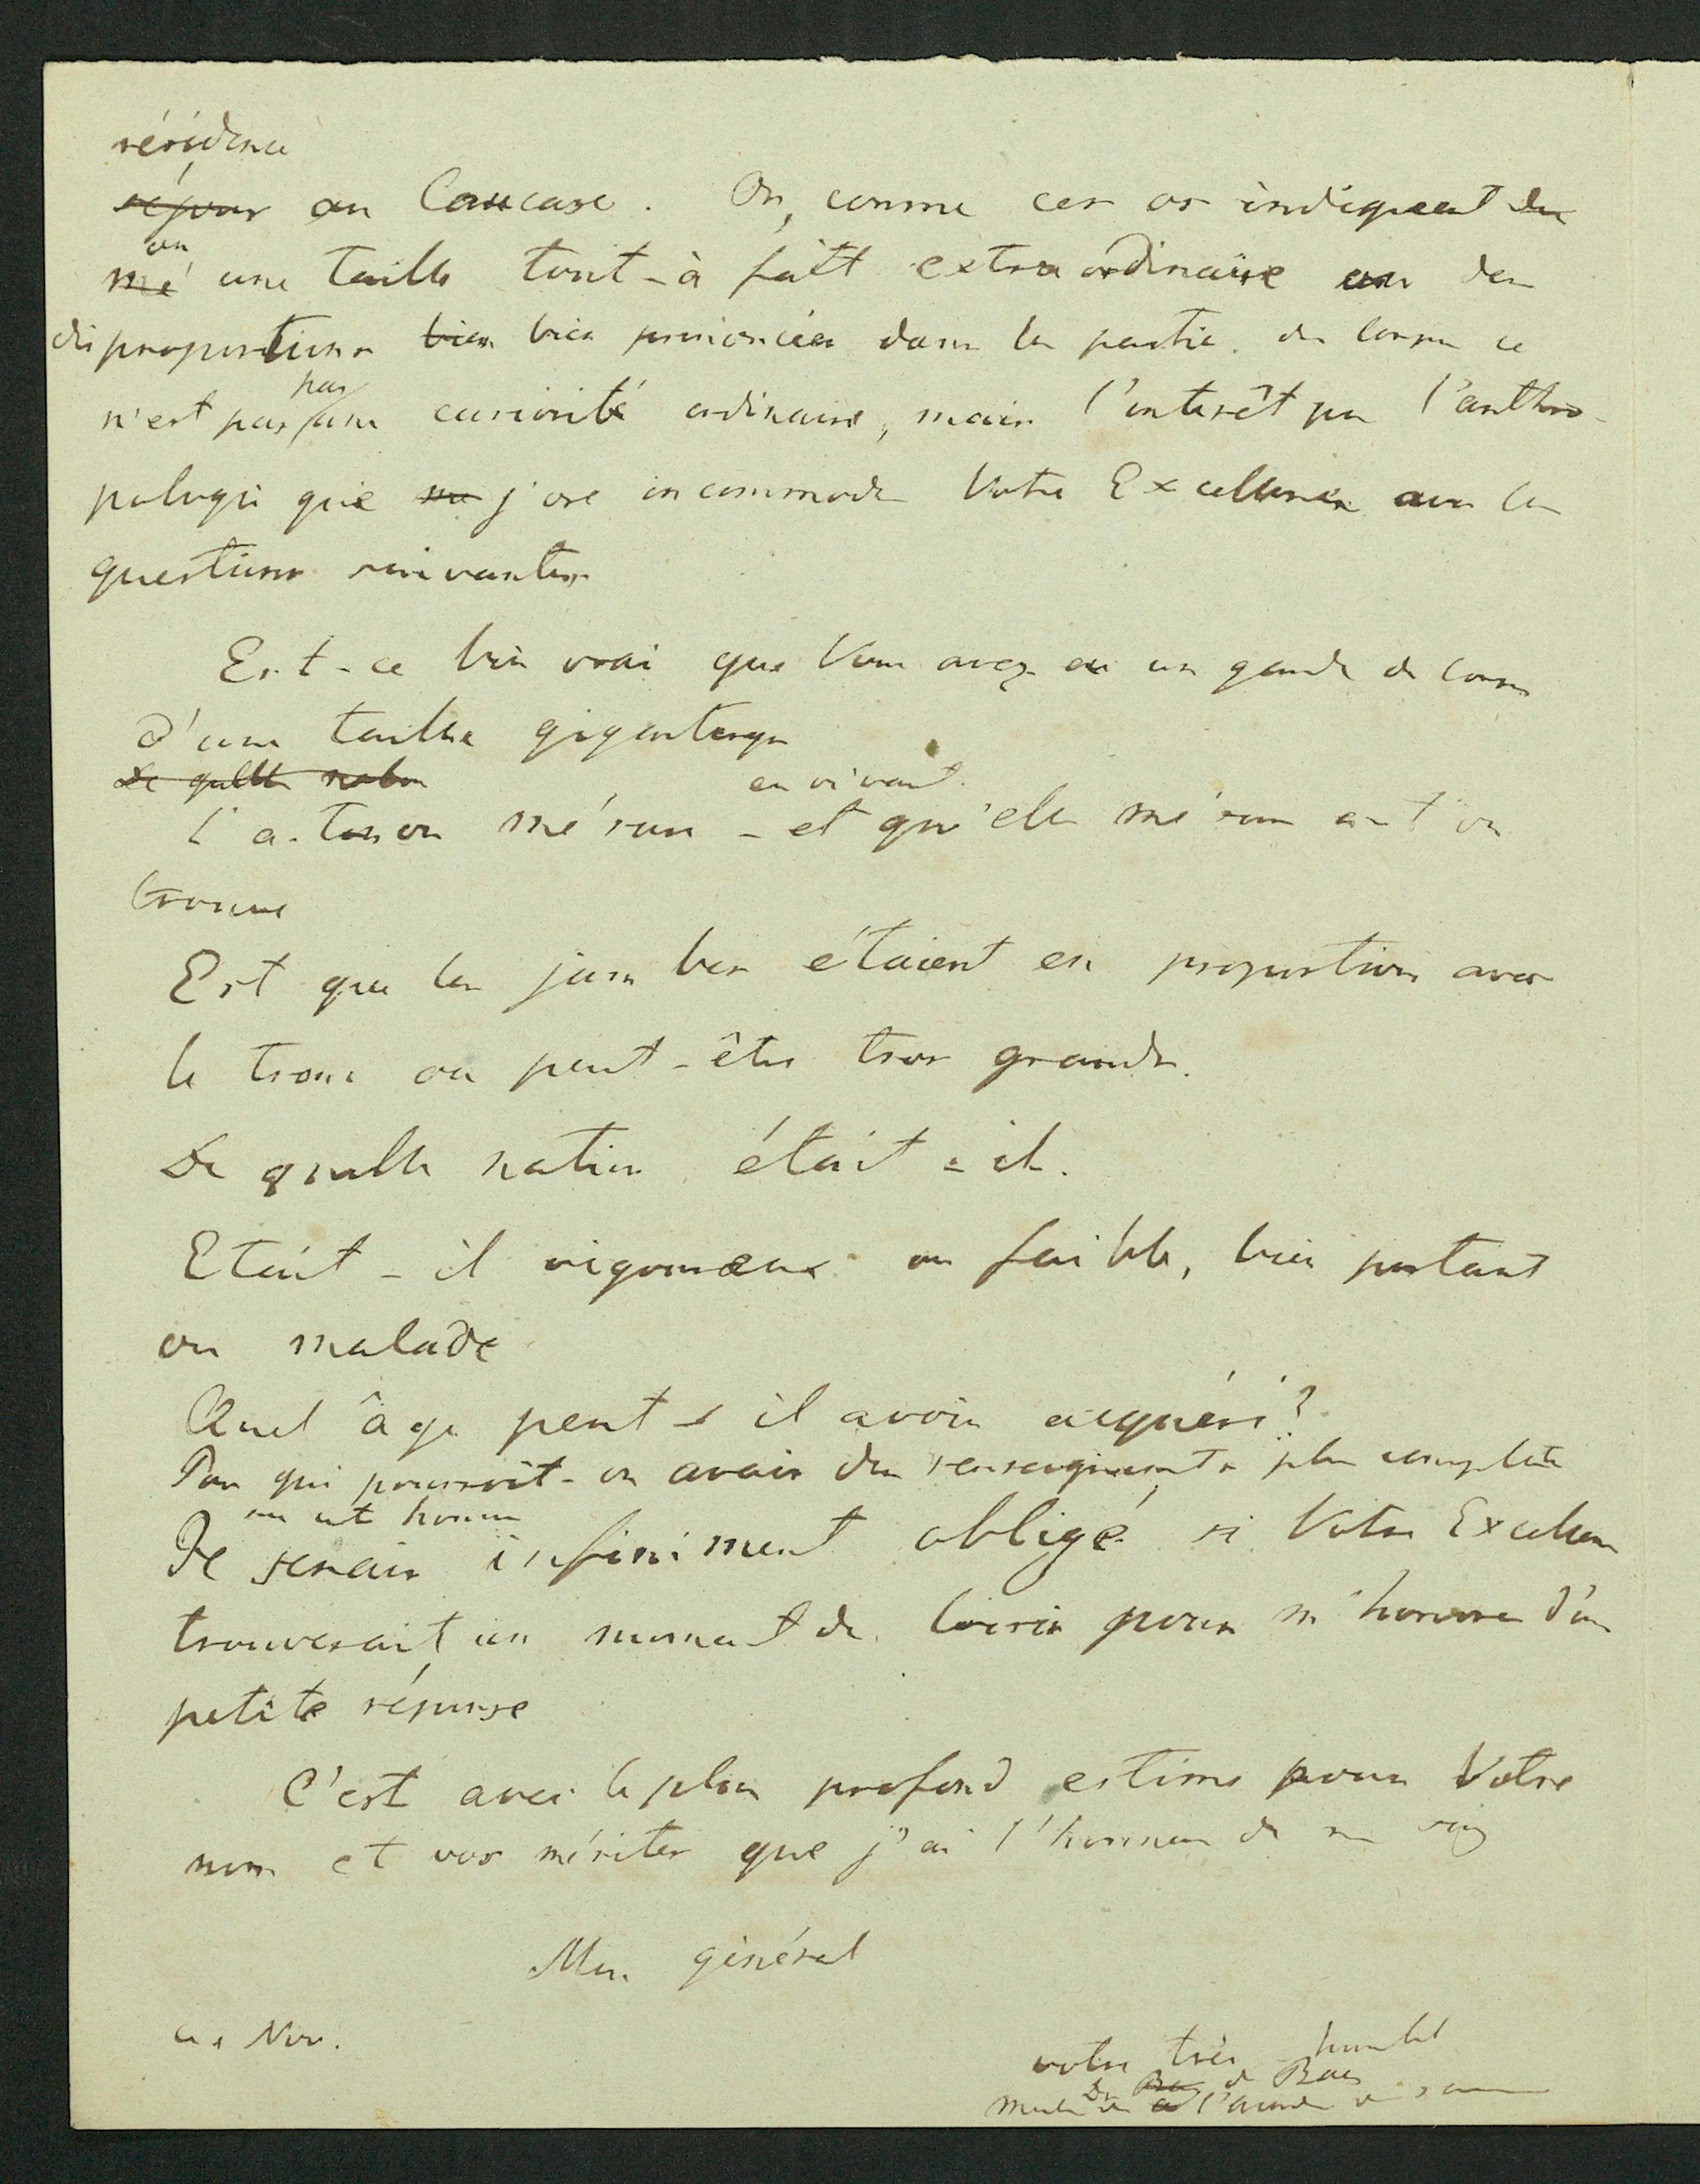 résidence
séjour au Caucase. Or, comme ces os indiquent du
ou
mé une taille tout-à fait extraordinaire ou des
disproportions bien bien prononcées dans les parties du corps ce
pas
n'est pas une curiosité ordinaire, mais l'intérêt pour l'anthro-
pologie que j'ose incommoder Votre Excellence avec les
questions suivantes
Est-ce bien vrai que Vous avez eu un garde de corps
d'une taille gigantesque
De quelle nation
en vivant
L'a-t-on mésuré - et quelle mésure a-t'on
trouvé
Est que les jambes étaient en proportion avec
le tronc ou peut-être trop grandes.
De quelle nation était-il.
Etait-il vigoureux ou faible, bien portant
ou malade
Quel âge peut-il avoir acquéri?
Par qui pourroit-on avoir des renseignements plus complets
sur cet homme
Je serais infiniment obligé si Votre Excellence
trouverait un moment de loisir pour m'honorer d'une
petite réponse
C'est avec la plus profond estime pour Votre
nom et vos mérites que j'ai l'honneur de
Mon général
Nov.
votre très humble
Dr de Baer
de l'Académie